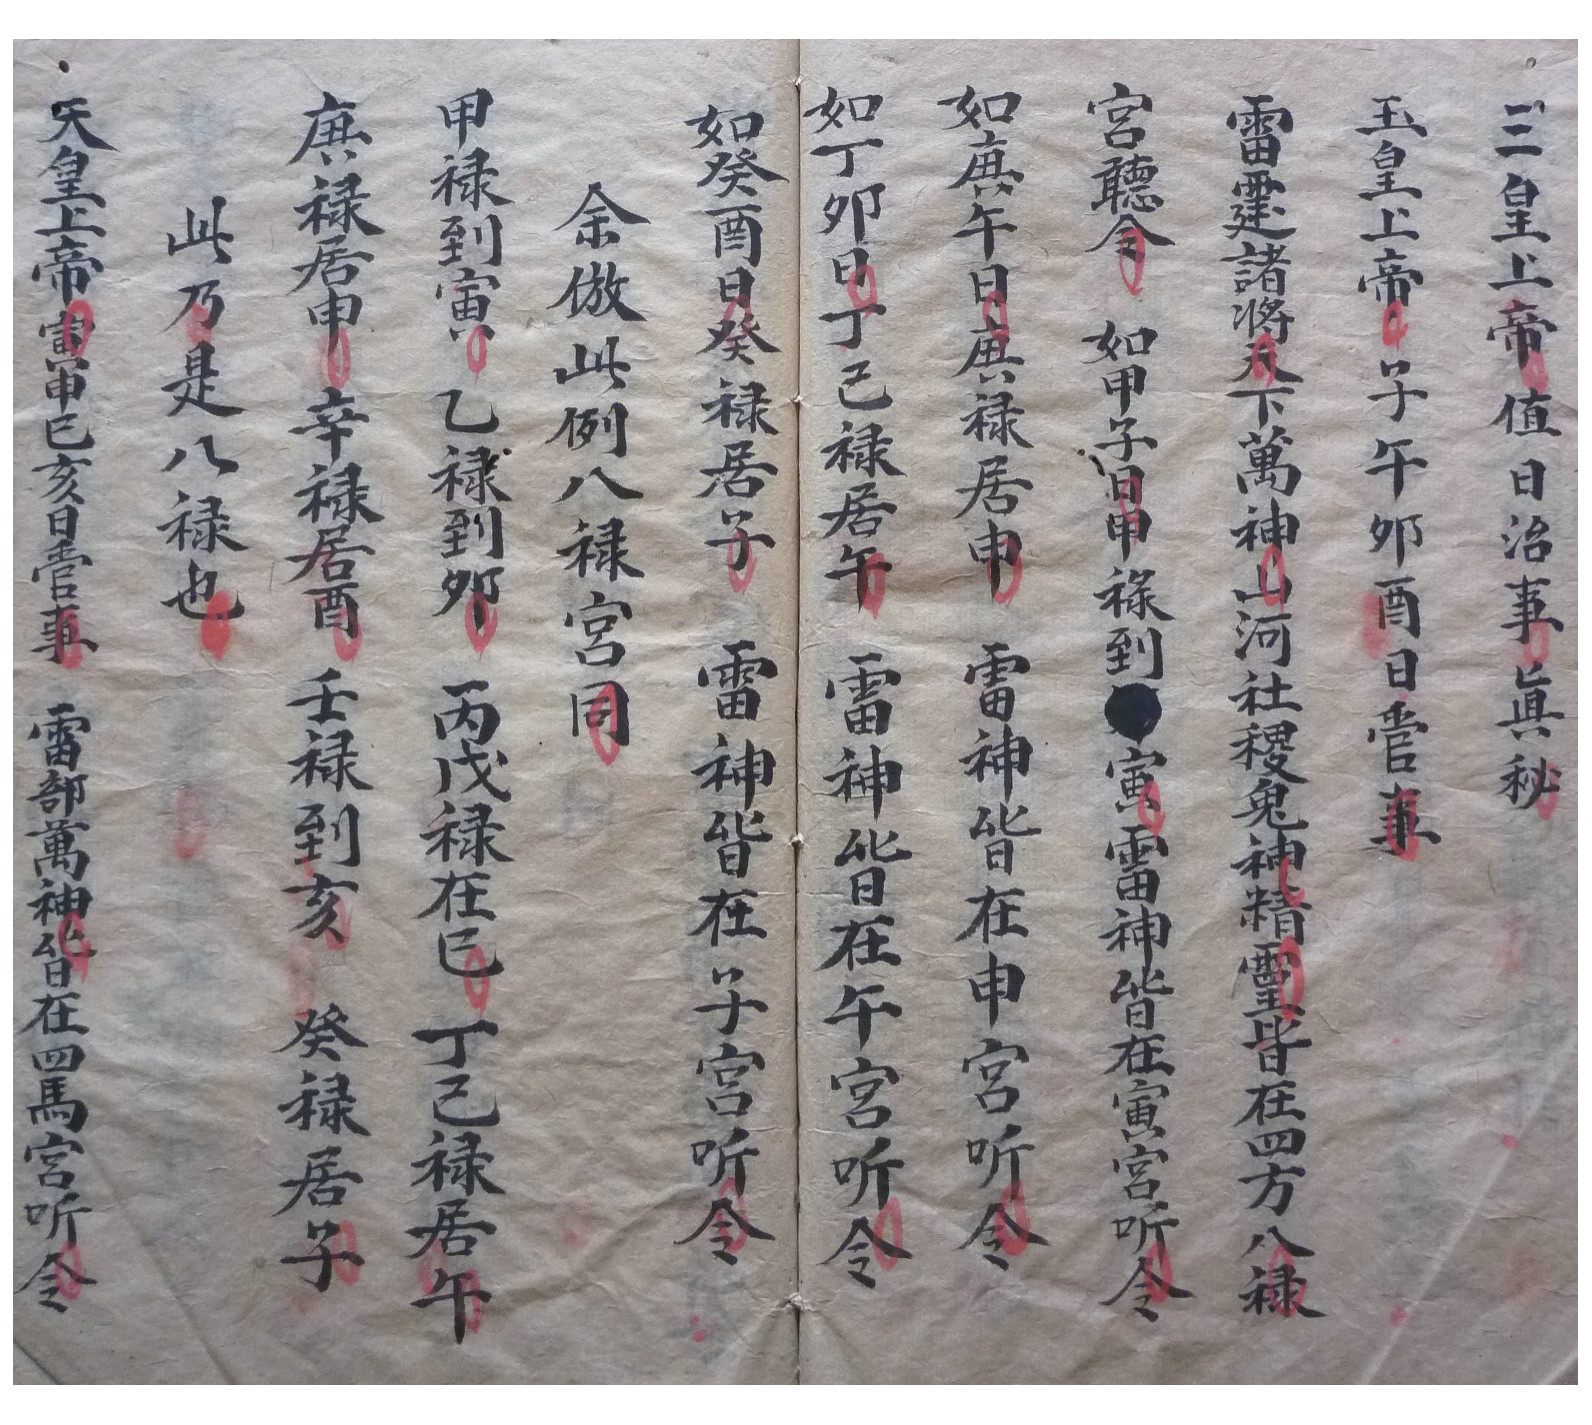 三皇上帝值日治事眞秘
玉皇上帝子午卯酉日管事
雷霆諸將天下萬神山河社稷鬼神精靈皆在四方八禄
宮聽令 如甲子日甲祿到寅雷神皆在寅宮听令
如庚午日庚禄居申 雷神皆在申宮听令
如丁卯日丁己禄居午 雷神皆在午宮听令
如癸酉日癸禄居子 雷神皆在子宮听令
余倣此例八禄宮同
甲禄到寅 乙禄到卯 丙戊禄在巳 丁己禄居午
庚禄居申 辛禄居酉 壬禄到亥 癸禄居子
此乃是八禄也
天皇上帝寅申巳亥日管事 雷部萬神皆在四馬宮听令